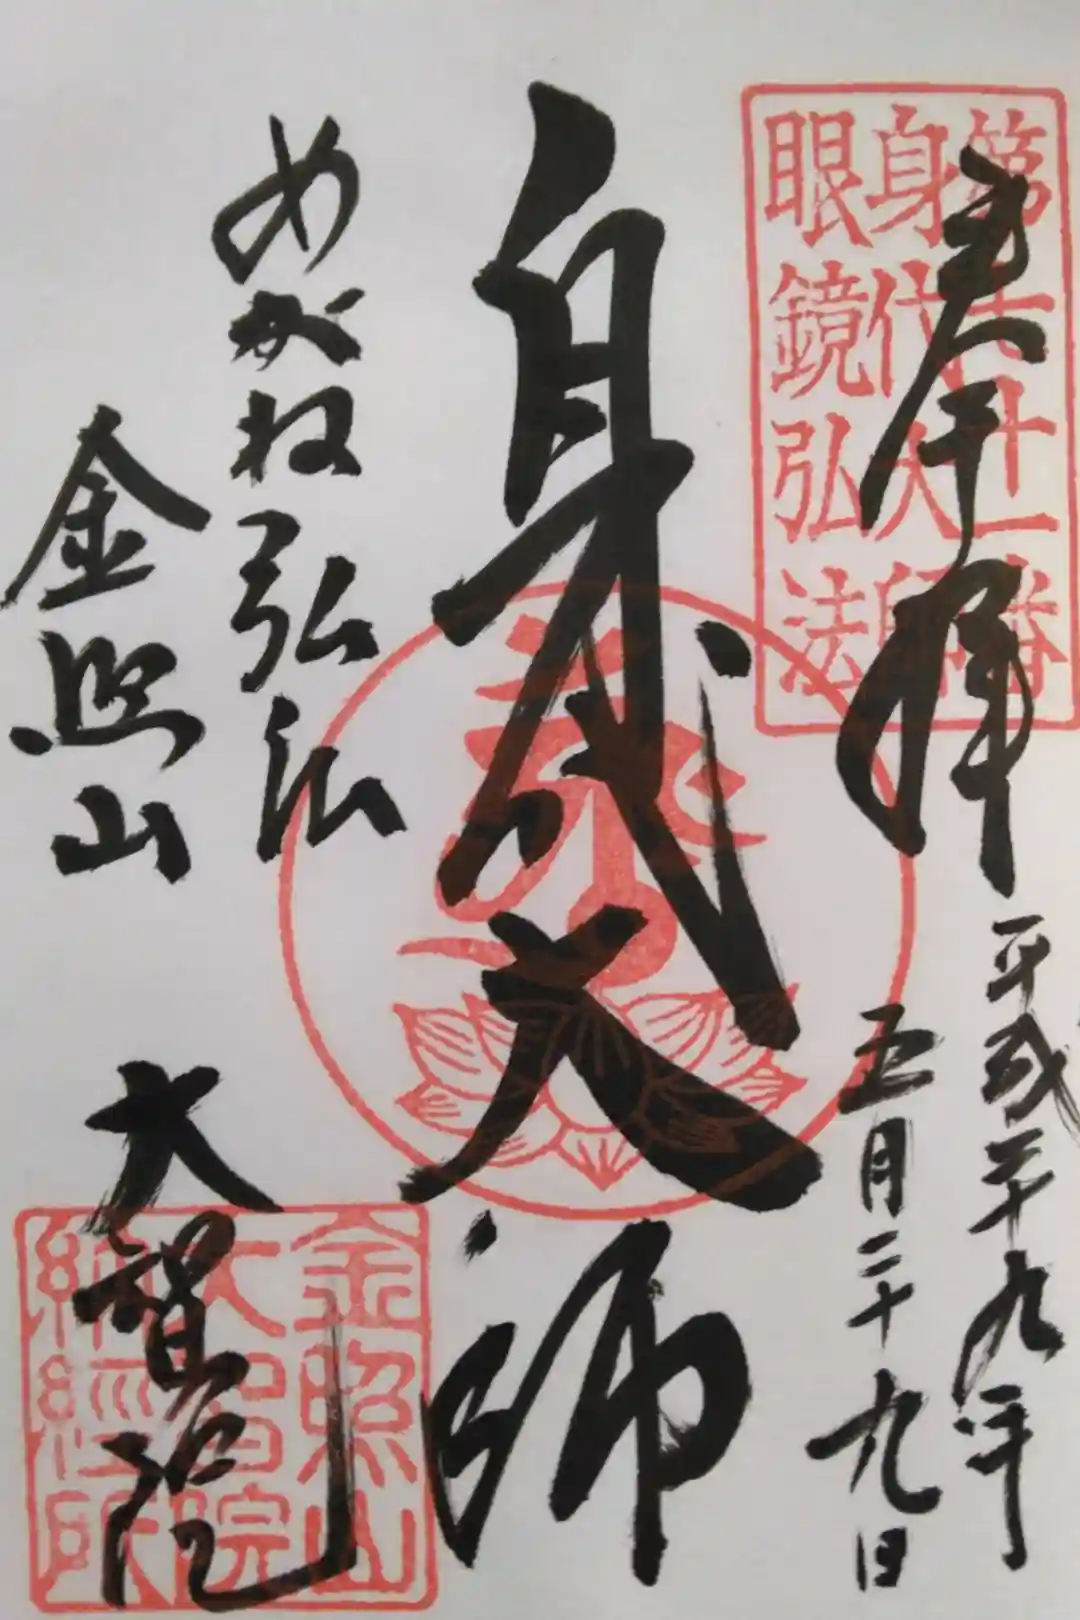 奉拝
平成二十九年
五月二十九日
第七十一番
身代大師
眼鏡弘法
身代大師
めがね弘法
金照山
大智院
金照山
大智院
納経所